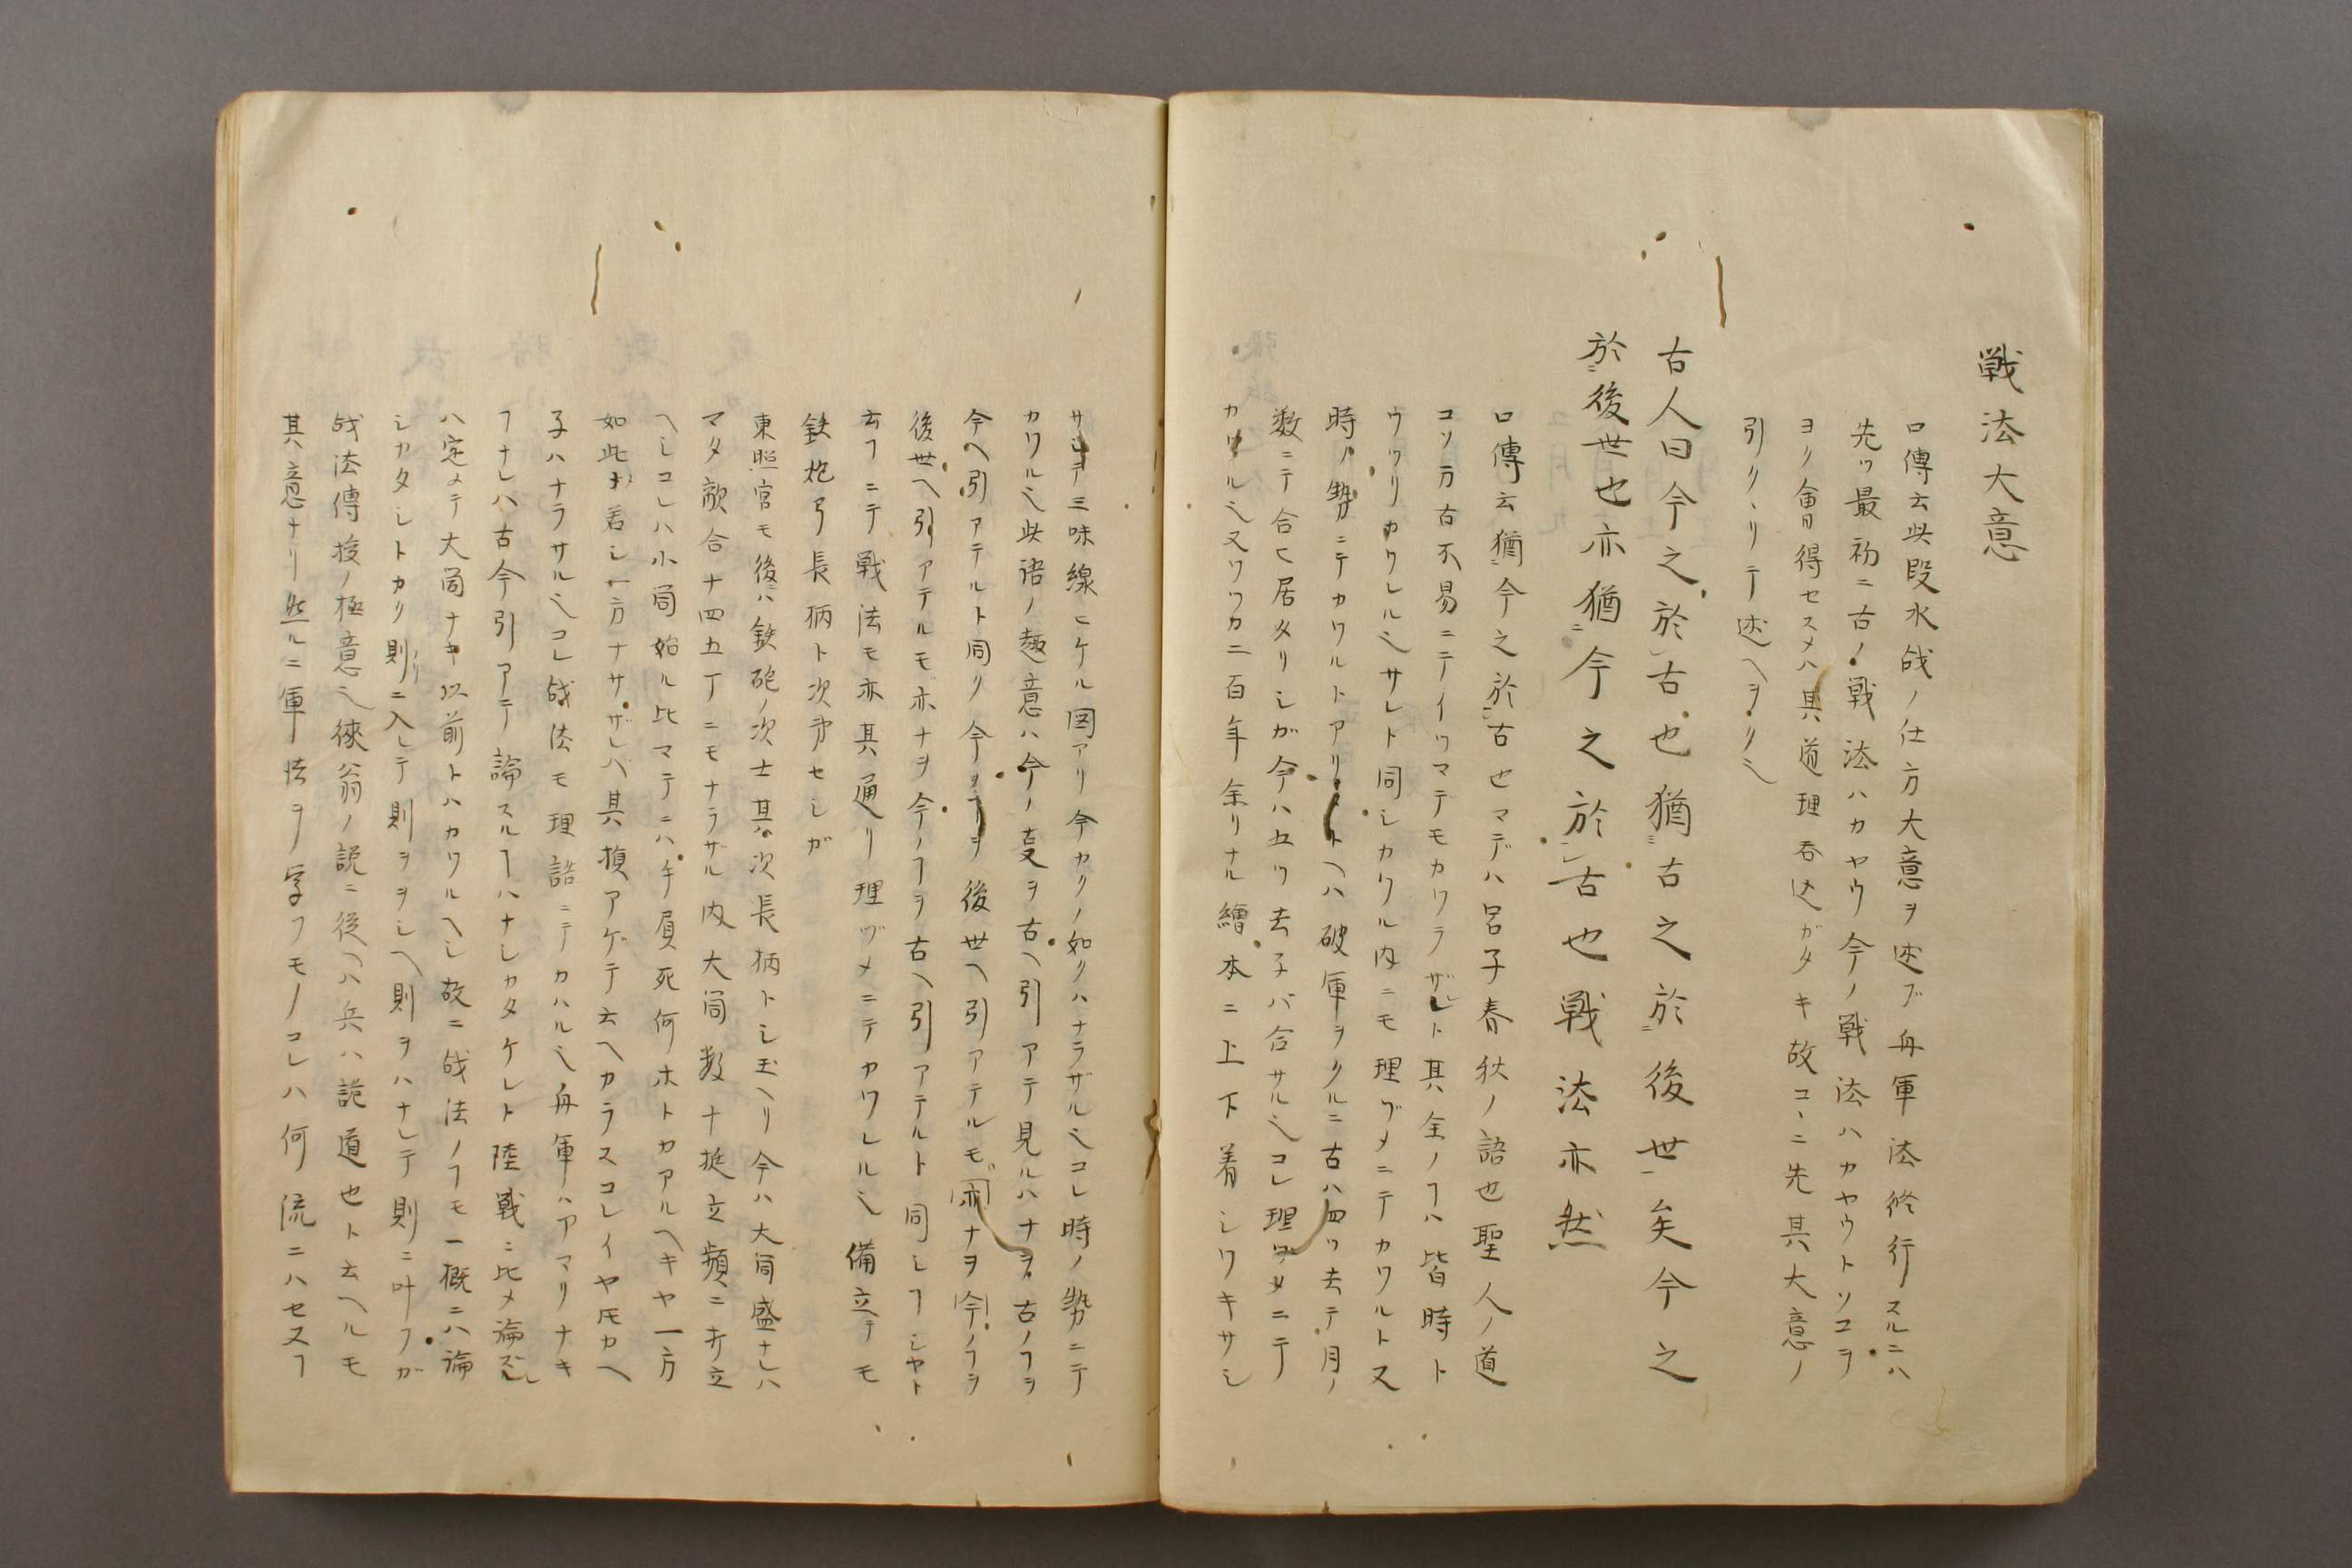 戦法大意
口傳云此段水戦ノ仕方大意ヲ述ブ舟軍法修行スルニハ
先ツ最初ニ古ノ戦法ハカヤウ今ノ戦法ハカヤウトソコヲ
ヨク會得セスメハ其道理呑込ガタキ故コヽニ先其大意ノ
引クヽリテ述ヘヲクヿ
古人曰今之於古也猶古之於後世矣今之
於後世也亦猶今之於古也戦法亦然
口傳云猶今之於古也マデハ呂子春秋ノ語也聖人ノ道
コソ万古不易ニテイツマデモカワラザレト其全ノヿハ皆時ト
ウツリカワレル也サレト同シカワル内ニモ理ヅメニテカワルト又
時ノ勢ニテカワルトアリトヘハ破軍ヲクルニ古ハ四ツ去テ月ノ
数ニテ合セ居タリシガ今ハ五ツ去子バ合サル也コレ理ヅメニテ
カワル也又ワツカ二百年余リナル繪本ニ上下着シワキサシ
サシテ三味線ヒケル図アリ今カクノ如クハナラザル也コレ時ノ勢ニテ
カワル也此語ノ趣意ハ今ノ変ヲ古ヘ引アテ見ルハナヲ古ノヿヲ
今ヘ引アテルト同ク今ノヿヲ後世ヘ引アテルモ亦ナヲ今ノヿヲ
後世ヘ引アテルモ亦ナヲ今ノヿヲ古ヘ引アテルト同シヿシヤト
云フニテ戦法モ亦其通リ理ヅメニテカワレル也備立テモ
鉄炮弓長柄ト次第セシガ
東照宮モ後ハ鉄砲ノ次士其次長柄トシ玉ヘリ今ハ大筒盛ナレハ
マタ敵合十四五丁ニモナラザル内大筒数十挺立頻ニ打立
ヘシコレハ小筒始ル比マテニハ手負死何ホトカアルヘキヤ一方
如此ナ若シ一方ナサザレバ其損アゲテ云ヘカラスコレイヤ𪜈カヘ
子ハナラサル也コレ戦法モ理詰ニテカハル也舟軍ハアマリナキ
ヿナレハ古今引アテ論スルヿハナシカタケレト陸戦ニ比メ論ズレ
ハ定メテ大筒ナキ以前トハカワルヘシ故ニ戦法ノヿモ一概ニハ論
シカタシトカク則ニ入レテ則ヲヲシヘ則ヲハナレテ則ニ叶フガ
戦法傳授ノ極意也徠翁ノ説ニ従ヘハ兵ハ詭道也ト云ヘルモ
其意ナリ然ルニ軍法ヲ学フモノコレハ何流ニハセスヿ